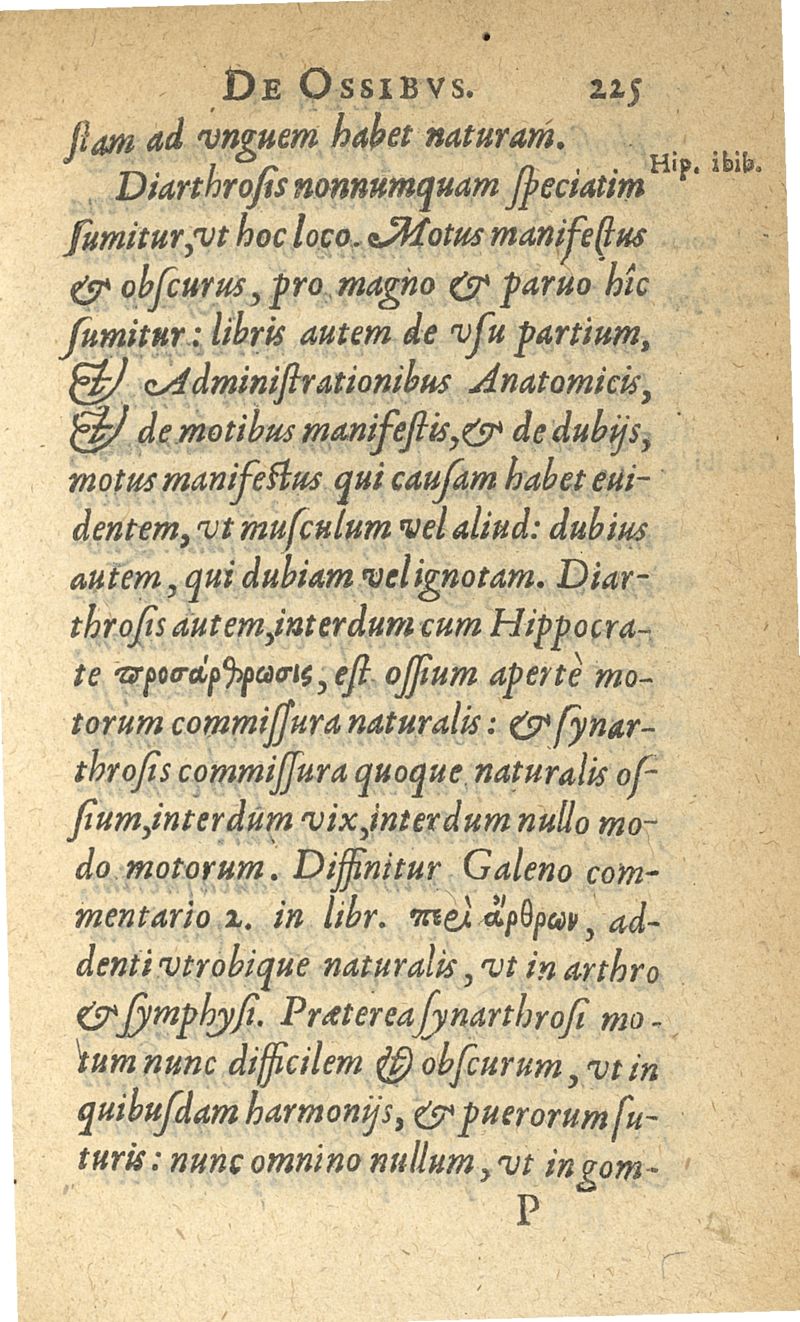 DE OSSIBVS. 225
ſtam ad vnguem habet naturam.
Hip. ibib.
Diarthroſis nonnumquam ſpeciatim
ſumitur, vt hoc loco. Motus manifeſtus
& obſcurus, pro magno & paruo hîc
ſumitur: libris autem de vſu partium,
& Adminiſtrationibus Anatomicis,
& de motibus manifeſtis, & de dubijs,
motus manifeſtus qui cauſam habet eui-
dentem, vt muſculum vel aliud: dubius
autem, qui dubiam vel ignotam. Diar-
throſis autem, interdum cum Hippocra-
te προσάρθρωσις, eſt oſſium apertè mo-
torum commiſſura naturalis: & ſynar-
throſis commiſſura quoque naturalis oſ-
ſium, interdum vix, interdum nullo mo-
do motorum. Diffinitur Galeno com-
mentario 2. in libr. περὶ ἄρθρων, ad-
denti vtrobique naturalis, vt in arthro
& ſymphyſi. Præterea ſynarthroſi mo-
tum nunc difficilem & obſcurum, vt in
quibuſdam harmonijs, & puerorum ſu-
turis: nunc omnino nullum, vt in gom-
P